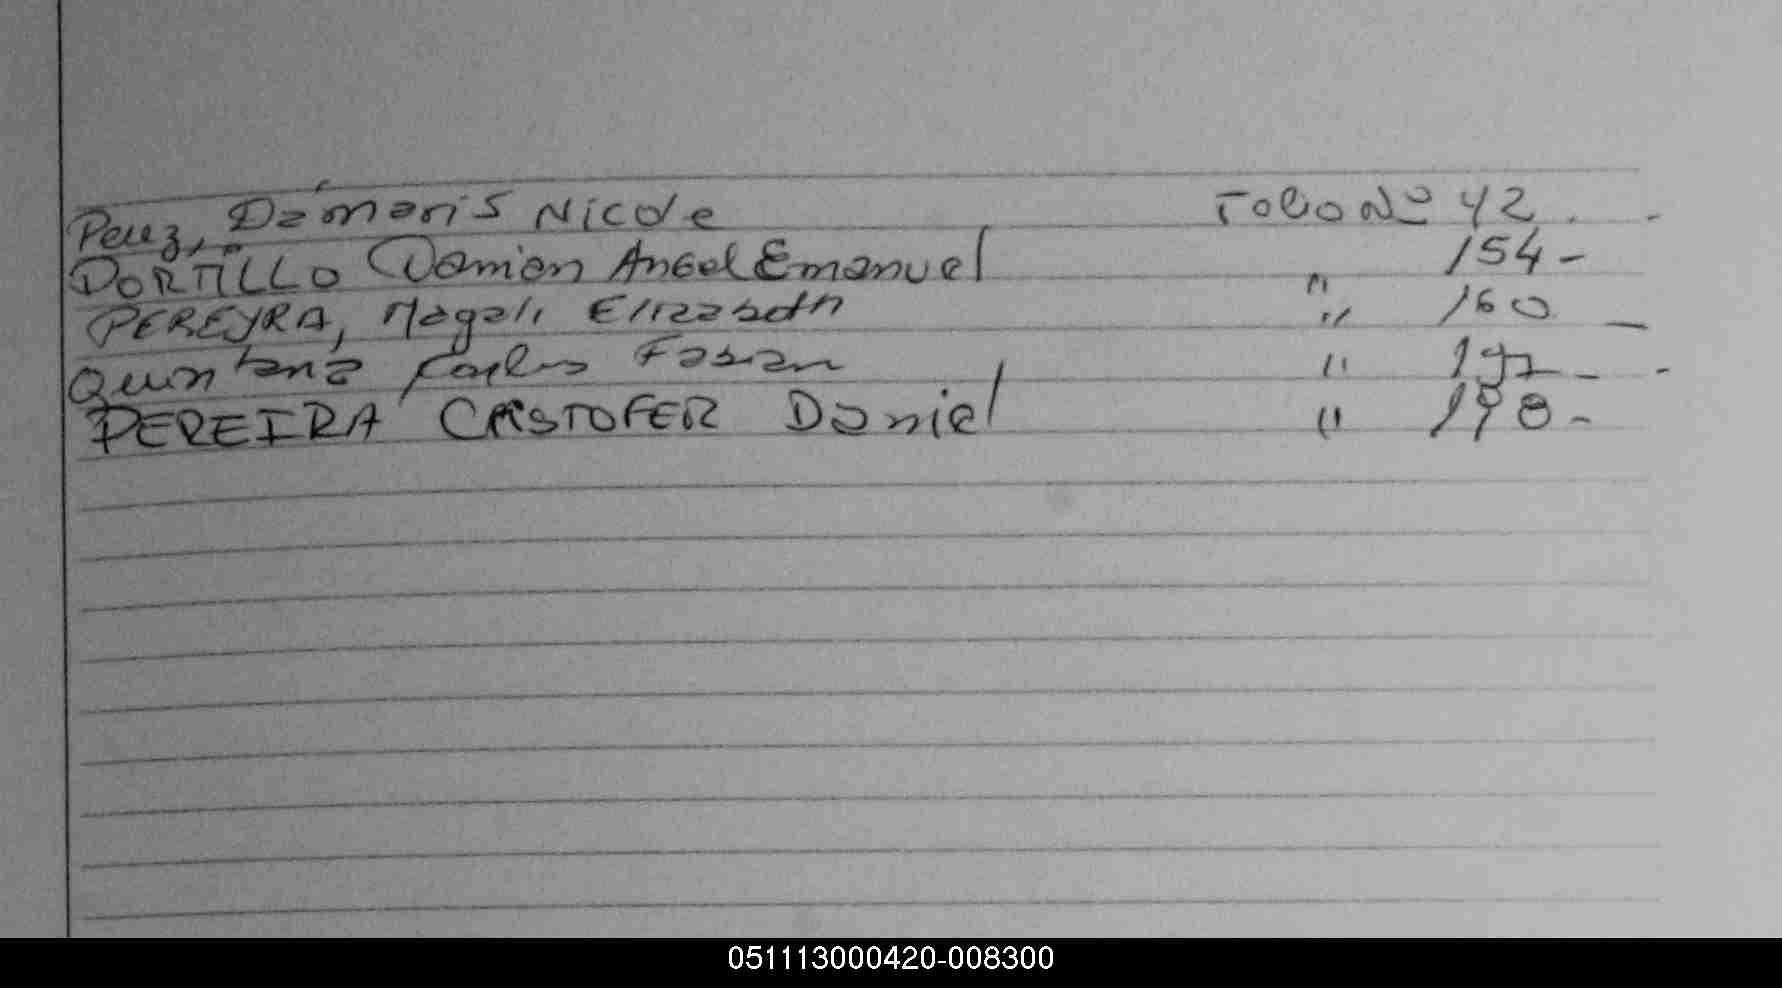 Perez, Dámaris Nicole Folio Nº 42.
PORTILLO Damian Angel Emanuel " 154-
PEREYRA, Magali Elizabeth " 160
Quintana Carlos Fabian " 192-
PEREIRA CRISTOFER Daniel " 198-
051113000420-008300